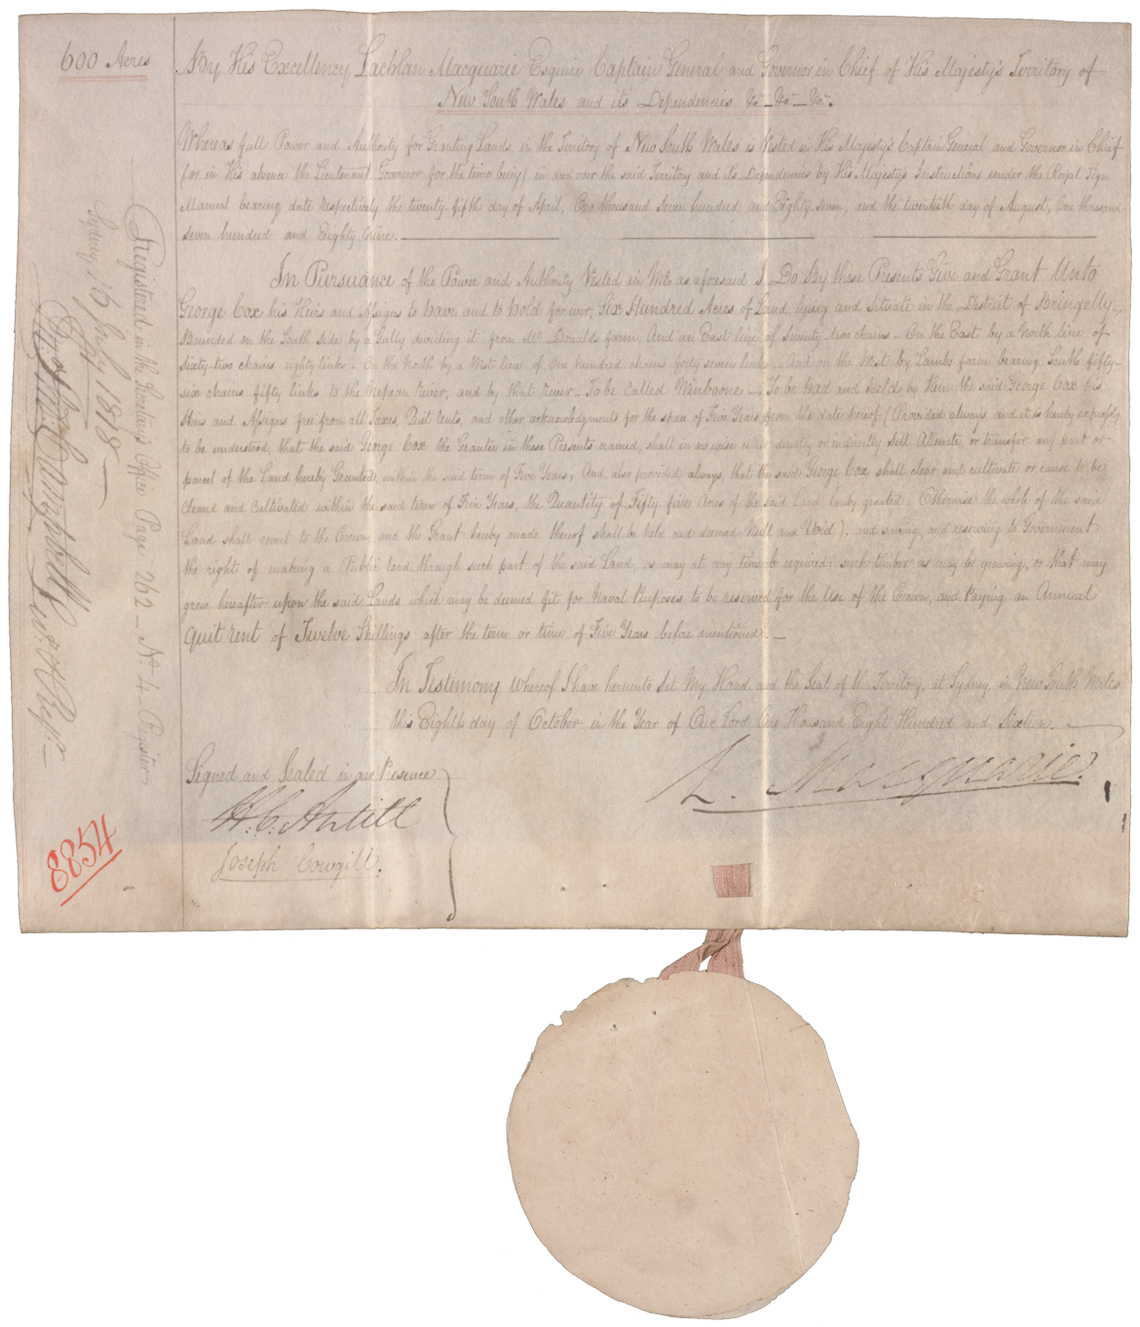 600 Acres
By His Excellency Lachlan Macquarie Esquire Captain General and Governor in Chief of His Majesty's Territory of
New South Wales and its Dependencies &c - &c - &c -.
Whereas full Power and Authority for Granting Lands in the Territory of New South Wales is Vested in His Majesty's Captain General and Governor in Chief
(or in His absence the Lieutenant Governor for the time being) in and over the said Territory and its Dependencies by His Majesty's Instructions under the Royal Sign
Manual bearing date respectively the twenty fifth day of April, One thousand Seven hundred and Eighty seven, and the twentieth day of August, One thousand
seven hundred and Eighty Nine.
In Pursuance of the Power and Authority Vested in Me as aforesaid I Do By these Presents Give and Grant Unto
George Cox his Heirs and Assigns to have and to hold for ever, Six Hundred Acres of Land lying and Situate in the District of Bringelly
Bounded on the South Side by a Gully dividing it from Mc Donalds farm, And an East line of Seventy two chains - On the East by a North line of
Sixty-two chains eighty links - On the North by a West line of One hundred chains forty seven links - And on the West by farm bearing South fifty-
six chains fifty links to the Nepean River, and by that river - To be Called Winbourne - To be had and held by Him the said George Cox his
Heirs and Assigns free from all Taxes, Quit Rents, and other acknowledgments for the space of Five Years from the date hereof (Provided always and it is hereby expressly
to be understood, that the said George Cox the Grantee in these Presents named, shall in no wise either directly or indirectly Sell, Alienate, or transfer any part or
parcel of the Land hereby Granted, within the said term of Five Years, And also provided always, that the said George Cox shall clear and cultivate or cause to be
cleared and cultivated within the said term of Five Years, the Quantity of Fifty five Acres of the said Land hereby granted: Otherwise the whole of the said
Land shall revert to the Crown, and the Grant hereby made thereof shall be held and deemed Null and Void). and saving and reserving to Government
the right of making a Public road through such part of the said Land, as may at any time be required: such timber as may be growing, or that may
grow hereafter upon the said Lands which may be deemed fit for Naval Purposes to be reserved for the Use of the Crown, and Paying an Annual
Quit rent of Twelve Shillings after the term or time of Five Years before mentioned. -
In Testimony Whereof I have hereunto Set My Hand and the Seal of the Territory, at Sydney in New South Wales
this Eighth day of October in the Year of Our Lord One thousand Eight Hundred and Sixteen. -
L. Macquarie
Signed and Sealed in our Presence
H. C. Antill
Joseph Cowgill.
Registered in the Secretary's Office Page 262 - No 4 Register
Sydney 16 July 1818 -
Campbell Secy & Regr -
8854